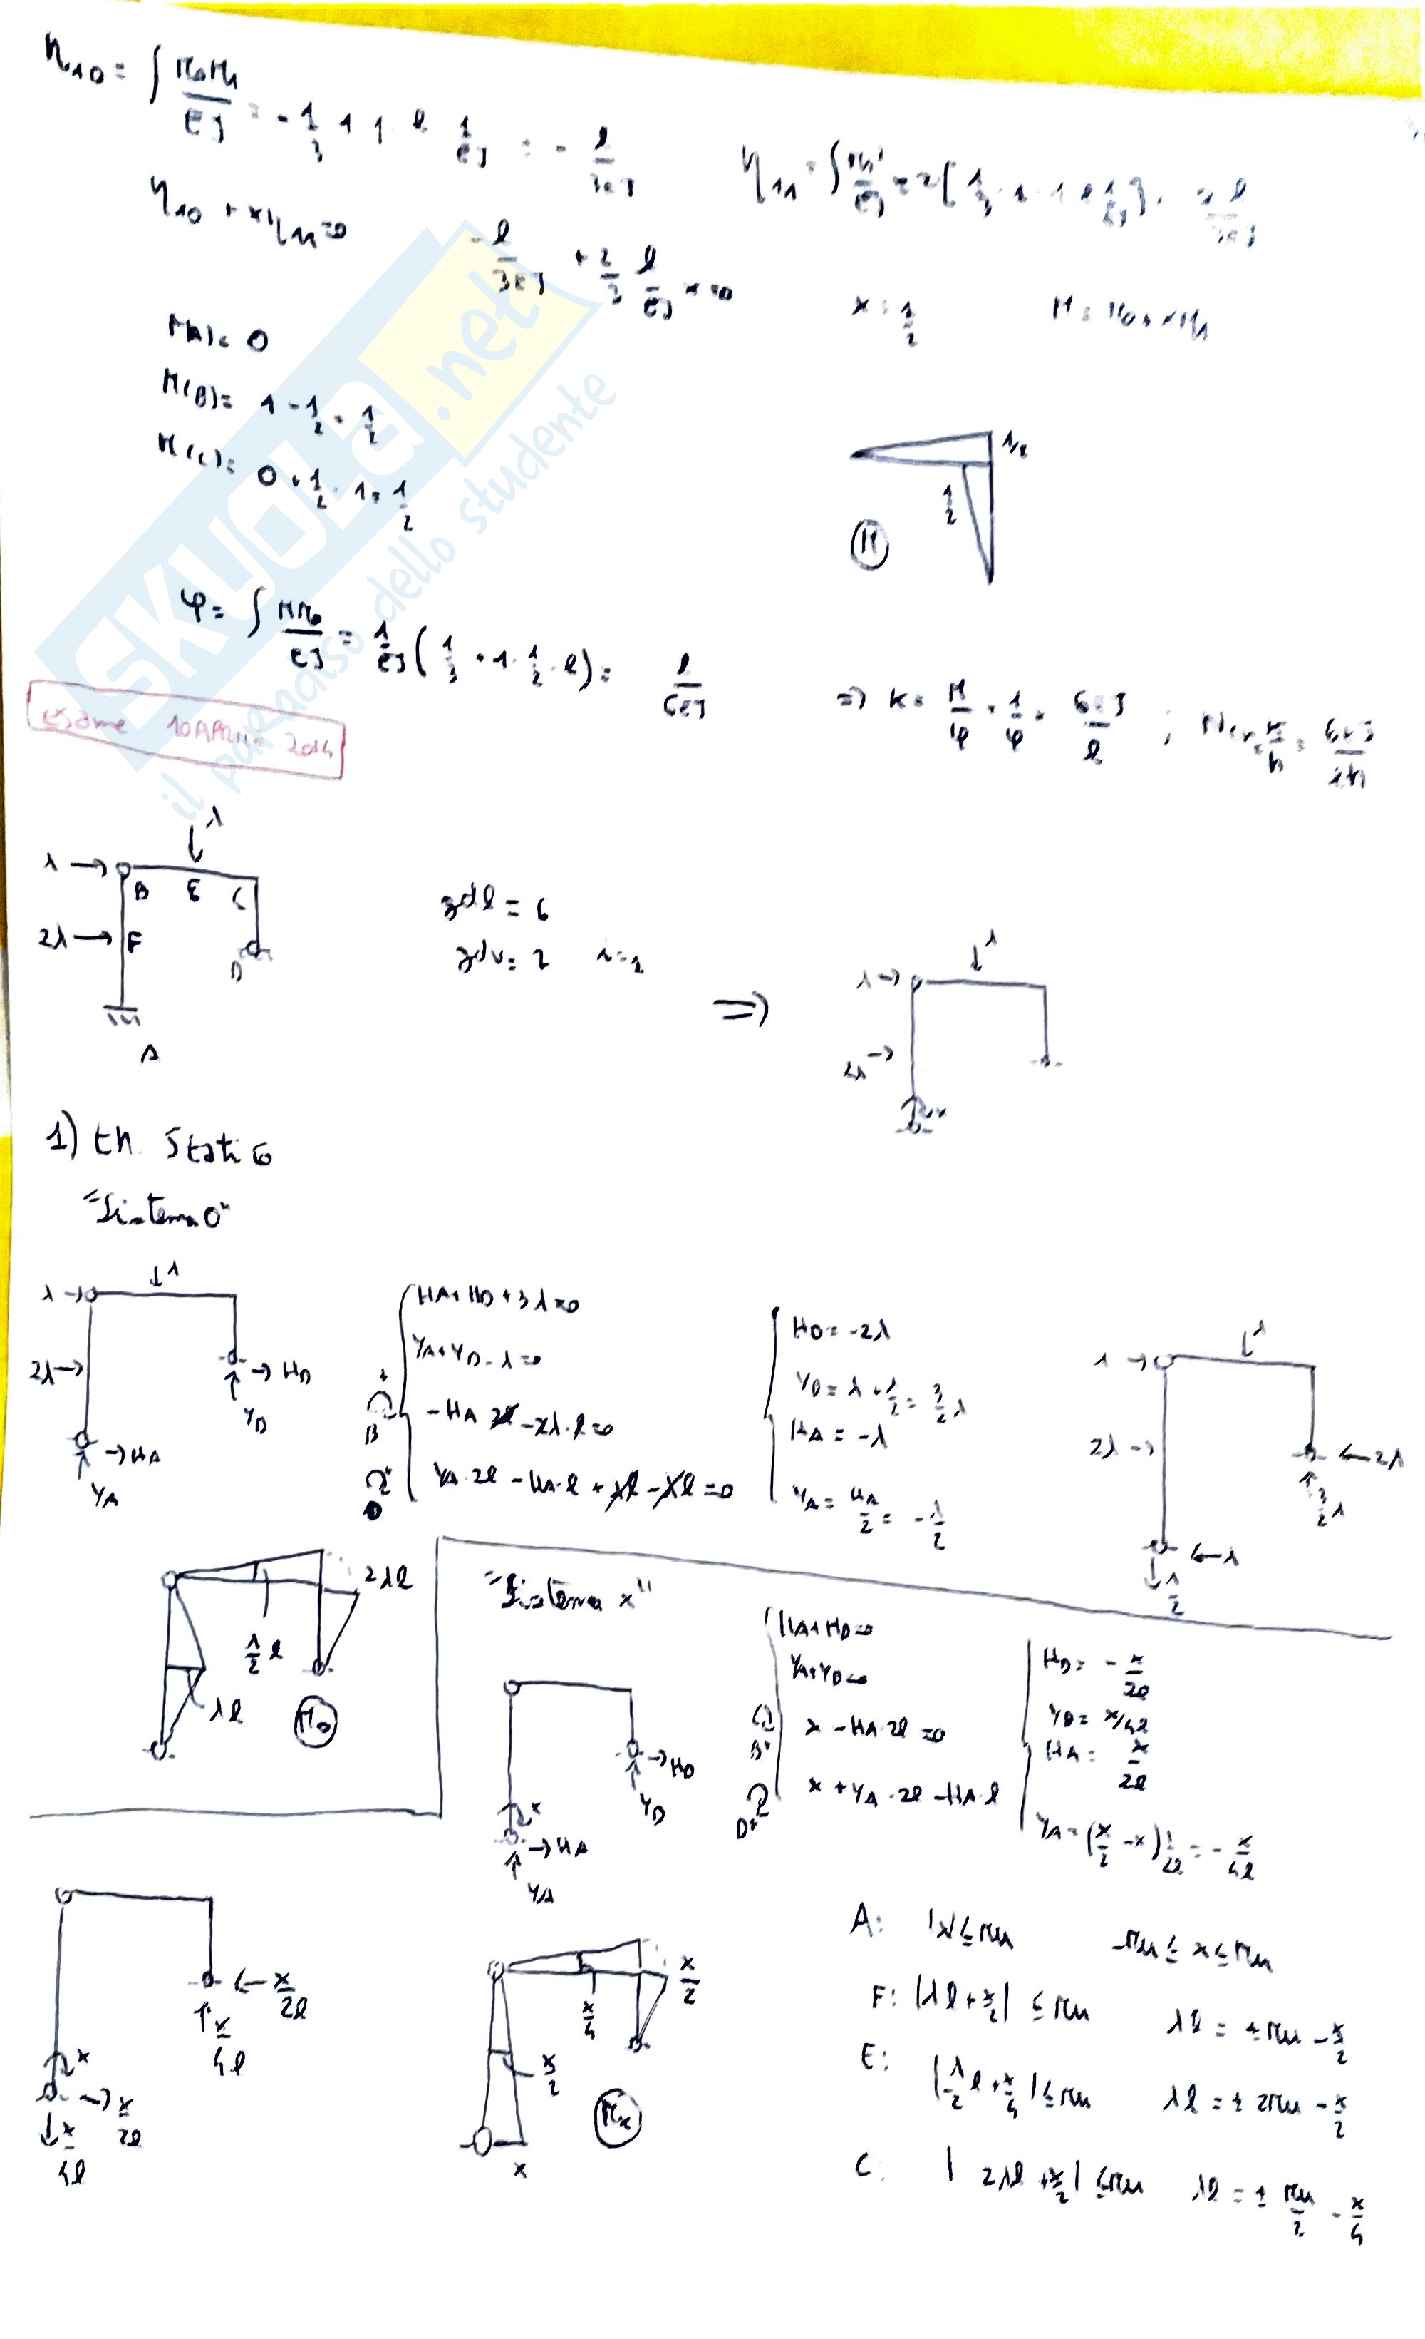 η₁₀ = ∫ M₀M₁/EJ = - 1/3 · 1 · 1 · l · 1/EJ = - l/3EJ
η₁₁ = ∫ M₁²/EJ = 2[1/3 · 1 · 1 · l · 1/EJ] = 2l/3EJ
η₁₀ + xη₁₁ = 0
- l/3EJ + 2/3 l/EJ x = 0
x = 1/2
M = M₀ + xM₁
M(A) = 0
M(B) = 1 - 1/2 = 1/2
M(C) = 0 + 1/2 · 1 = 1/2
1/2
1/2
M
φ = ∫ MM₀/EJ = 1/EJ (1/3 · 1 · 1/2 · l) = l/6EJ
=> K = M/φ = 1/φ = 6EJ/l ; Ncr = K/h = 6EJ/lh
esame 10 APRILE 2014
SKUOLA.net
il paradiso dello studente
λ
λ
B E C
2λ F
D
A
gdl = 6
gdv = 7 i = 1
=>
λ
λ
2λ
x
1) th. Statico
"Sistema 0"
λ
λ
2λ
HD
YD
HA
YA
HA + HD + 3λ = 0
YA + YD - λ = 0
B - HA 2l - 2λ · l = 0
D YA · 2l - HA · l + λl - λl = 0
HD = -2λ
YD = λ + λ/2 = 3/2 λ
HA = -λ
YA = HA/2 = - λ/2
λ
λ
2λ
2λ
3/2 λ
λ
λ/2
2λl
λ/2 l
λl
M₀
"Sistema x"
HD
YD
x
HA
YA
HA + HD = 0
YA + YD = 0
B x - HA · 2l = 0
D x + YA · 2l - HA · l
HD = - x/2l
YD = x/4l
HA = x/2l
YA = (x/2 - x) 1/2l = - x/4l
x/2l
x/4l
x
x/2l
x/4l
x/2
x/4
x/2
x
Mx
A: |x| ≤ Mu -Mu ≤ x ≤ Mu
F: |λl + x/2| ≤ Mu λl = ± Mu - x/2
E: |λ/2 l + x/4| ≤ Mu λl = ± 2Mu - x/2
C: | 2λl + x/2| ≤ Mu λl = ± Mu/2 - x/4